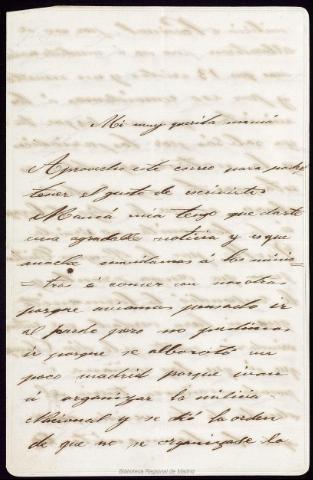 Mi muy querida mamá
Aprovecho este correo para poder
tener el gusto de escrivirte
Mamá mia tengo que darte
una agradable noticia y es que
anoche convidamos á los minis=
=tros á comer con nosotras
porque ivamos pensado ir
al pardo pero no pudimos
ir porque se alborotó un
poco madrid porque ivan
á organizar la milicia
Nacional y se dió la orden
de que no se organizase la
Biblioteca Regional de Madrid